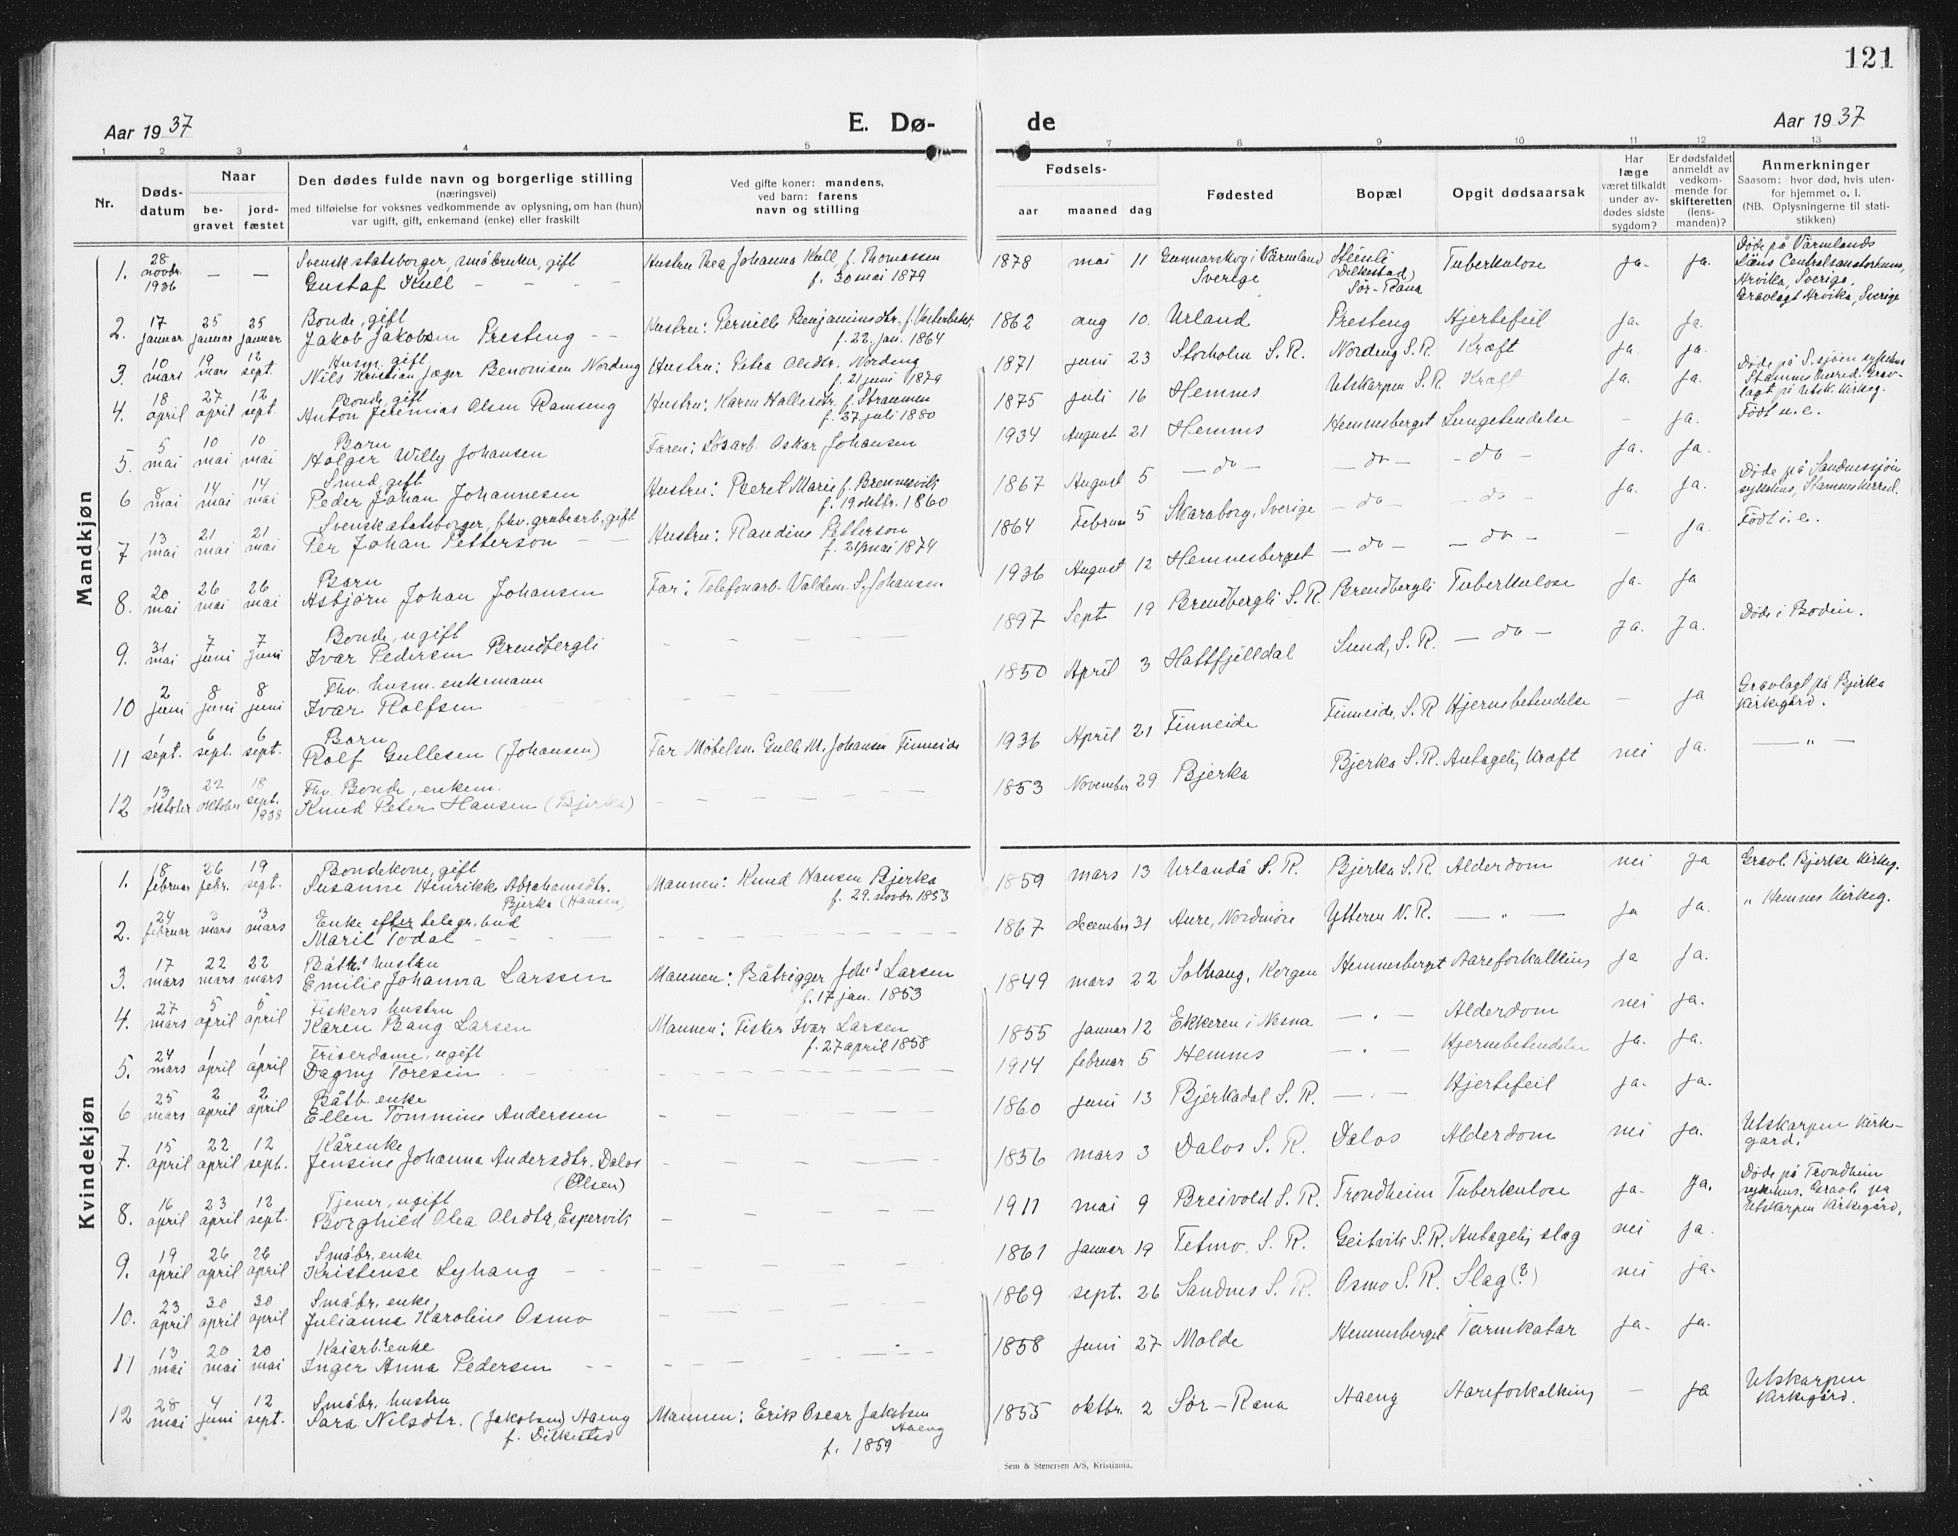 121
Aar 1937
E. Dø-
de
Aar 1937
1 2 3 4 5 6 7 8 9 10 11 12 13
Nr.
Døds-
datum
Naar
be-
gravet
jord-
fæstet
Den dødes fulde navn og borgerlige stilling
(næringsvei)
med tilføielse for voksnes vedkommende av oplysning, om han (hun)
var ugift, gift, enkemand (enke) eller fraskilt
Ved gifte koner: mandens,
ved barn: farens
navn og stilling
Fødsels-
aar maaned dag
Fødested
Bopæl
Opgit dødsaarsak
Har
læge
været tilkaldt
under av-
dødes sidste
sygdom?
Er dødsfaldet
anmeldt av
vedkom-
mende for
skifteretten
(lens-
manden)?
Anmerkninger
Saasom: hvor død, hvis uten-
for hjemmet o. l.
(NB. Oplysningerne til stati-
stikken)
Mandkjøn
1. 28 novbr. 1936 — — Svensk statsborger, småbruker, gift Gustaf Kull - - - - Hustru Thea Johanna Kull f. Thomassen f. 30 mai 1879 1878 mai 11 Gunnarskog i Värmland Sverige (Dilkestad) Sør-Rana Tuberkulose ja. ja. Døde på Värmlands Läns Centralsanatorium, Arvika, Sverige. Gravlagt Arvika, Sverige
2. 17 januar 25 januar 25 januar Bonde, gift Jakob Jakobsen Presteng - - Hustru: Pernille Benjaminsdtr. f. 22. jan. 1864 1862 aug 10. Urland Presteng Hjertefeil ja. ja.
3. 10 mars 19 mars 12 sept. Husm. gift Nils Kristian Jæger Benonisen Nordeng Hustru: Petra Olsdtr. Nordeng f. 21 juni 1879 1871 juni 23 Storholm S. R. Nordeng S. R. Kræft ja. ja. Døde på S. sjøen sykehus Stamnes herred. Grav- lagt på Utsk. kirkeg.
4. 18 april 27 april 12 sept Bonde, gift Anton Jeremias Olsen Ramseng Hustru: Karen Hallesdtr. f. Straumen f. 27 juli 1880 1875 juli 16 Hemnes Utskarpen S. R. Kræft ja. ja.
5. 5 mai 10 mai 10 mai Barn Holger Willy Johansen Faren: Løsarb. Oskar Johansen 1934 August 21 Hemnes Hemnesberget Lungebetendelse - ja. Født u.e.
6 8 mai 14 mai 14 mai Smed, gift Peder Johan Johannesen Hustru: Beret Marie f. Brennesvik f. 19 oktbr. 1860 1867 August 5 — do — — do — — do — ja. ja. Døde på Sandnessjøen sykehus, Stamnes herred.
7 13 mai 21 mai 21 mai Svensk statsborger, fhv. grubearb. gift Per Johan Petterson - - Hustru: Randine Petterson f. 24 mai 1874 1864 Februar 5 Skaraborg, Sverige — do — — do — ja. ja.
8. 20 mai 26 mai 26 mai Barn Asbjørn Johan Johansen Far: Telefonarb. Valdem. S. Johansen 1936 August 12 Hemnesberget — do — — do — - ja. Født i.e.
9. 31 mai 7 juni 7 juni Bonde, ugift Ivar Pedersen Brendbergli - - - - 1897 Sept 19 Brendbergli S. R. Brendbergli Tuberkulose ja. ja Døde i Bodin.
10 2 juni 8 juni 8 juni Fhv. husm. enkemann Ivar Rolfsen - - - - 1850 April 3 Hattfjelldal Sund, S. R. — do — ja. ja.
11 1 sept. 6 sept. 6 sept. Barn Rolf Gullesen (Johansen) Far Møbelsn. Gulle M. Johansen Finneide 1936 April 21 Finneide Finneide, S. R Hjernebetendelse - ja Gravlagt på Bjerka kirkegård.
12 13 oktober 22 oktober 18 sept. 1938 Fhv. Bonde, enkem. Knud Peter Hansen (Bjerka) - - - - 1853 November 29 Bjerka Bjerka S. R. Antagelig kræft nei ja. — " —
Kvindekjøn
1. 18 februar 26 febr. 19 sept. Bondekone, gift Susanne Henrikke Abrahamsdtr. Bjerka (Hansen) Mannen: Knud Hansen Bjerka f. 29. novbr. 1853 1859 mars 13 Urlandå S. R. Bjerka S. R. Alderdom nei ja Gravl. Bjerka kirkeg.
2. 24 februar 3 mars 3 mars Enke efter telegr. bud Marit Todal - - - - 1867 december 31 Aure, Nordmøre Ytteren N. R. — " — ja ja. " Hemnes kirkeg.
3. 17 mars 22 mars 22 mars hustru Emilie Johanna Larssen Mannen: Båtrigger Johs Larsen f. 17 jan. 1853 1849 mars 22 Solhaug, Korgen Hemnesberget Aareforkalkning ja ja.
4. 27 mars 5 april 5 april Fiskers hustru Karen Bang Larsen Mannen: Fisker Ivar Larsen f. 27 april 1858 1855 januar 12 Ekkeren i Nesna — " — Alderdom nei ja.
5. 24 mars 1 april 1 april Friserdame, ugift Dagny Toresen - - - - 1914 februar 5 Hemnes — " — Hjernebetendelse ja. ja.
6 25 mars 2 april 2 april Båtb. enke Ellen Tommine Anderssen - - - - 1860 juni 13 Bjerkadal S. R. — " — Hjertefeil ja. ja.
7. 15 april 22 april 12 sept. Kårenke Jensine Johanna Andersdtr. Dalos (Olsen) - - - - 1856 mars 3 Dalos S. R. Dalos Alderdom nei ja. Utskarpen kirke- gård.
8. 16 april 23 april 12 sept. Tjener, ugift Borghild Olea Olsdtr. Espervik - - - - 1911 mai 9 Breivold S. R. Trondheim Tuberkulose ja. ja. Døde på Trondheim sykehus. Gravl. på Utskarpen kirkegård.
9. 19 april 26 april 26 april Småbr. enke Kristense Lyhaug - - - - 1861 januar 19 Tetmo S. R. Geitvik S. R. Antagelig slag nei ja.
10. 23 april 30 april 30 april Småbr. enke Julianne Karoline Osmo - - - - 1869 sept. 26 Sandnes S. R. Osmo S. R. Slag (?) nei ja.
11 13 mai 20 mai 20 mai Kaiarb. enke Inger Anna Pedersen - - - - 1858 juni 27 Molde Hemnesberget Tarmkatar ja. ja.
12 28 mai 4 juni 12 sept. Småbr. hustru Sara Nilsdtr. (Jakobsen) Aaeng f. Dilkestad Mannen: Erik Oscar Jakobsen Aaeng f. 1859 1855 oktbr. 2 Sør-Rana Aaeng Aareforkalkning - ja Utskarpen kirkegård.
Sem & Stenersen A/S, Kristiania.